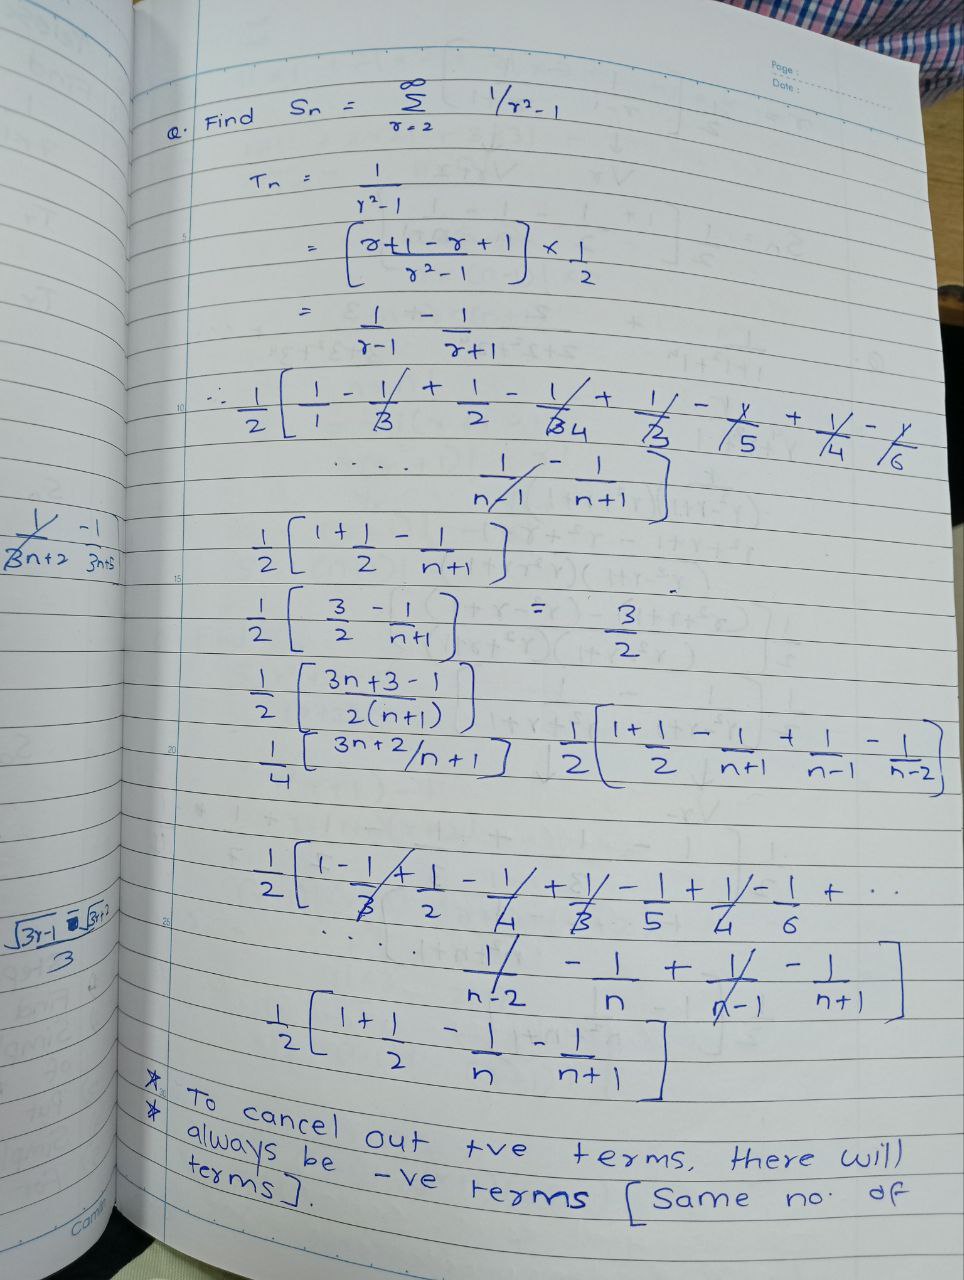 Page :
Date :
Q. Find Sn = ∞ Σ r=2 1/r²-1
Tn = 1/r²-1
5
= [r+1-r+1/r²-1] × 1/2
= 1/r-1 - 1/r+1
10
∴ 1/2 [1/1 - 1/3 + 1/2 - 1/4 + 1/3 - 1/5 + 1/4 - 1/6
.... 1/n-1 - 1/n+1]
1/3n+2 -1/3n+5
1/2 [1+1/2 - 1/n+1]
15
1/2 [3/2 - 1/n+1] = 3/2
1/2 [3n+3-1/2(n+1)]
20
1/4 [3n+2/n+1] 1/2 [1+1/2 - 1/n+1 + 1/n-1 - 1/n-2]
1/2 [1 - 1/3 + 1/2 - 1/4 + 1/3 - 1/5 + 1/4 - 1/6 + ..
25
√3r-1 - √3r+2/3
.... 1/n-2 - 1/n + 1/n-1 - 1/n+1]
1/2 [1+1/2 - 1/n - 1/n+1]
* To cancel out +ve terms, there will
* always be -ve terms [Same no. of
terms].